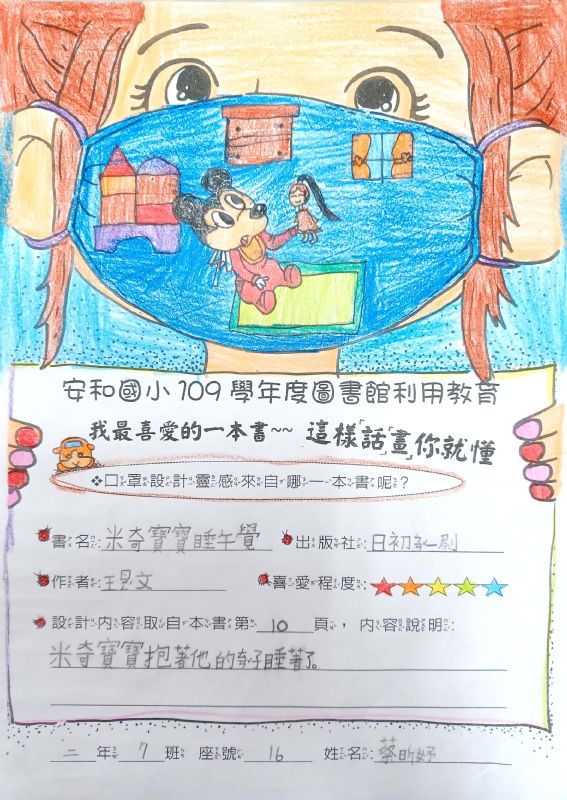 安和國小109學年度圖書館利用教育
我最喜愛的一本書~~ 這樣「話」「畫」你就懂
❖口罩設計靈感來自哪一本書呢?
書名:米奇寶寶睡午覺 出版社:日初
作者:王昱文 喜愛程度:
設計內容取自本書第10頁,內容說明:
米奇寶寶抱著他的 睡著了。
二年7班 座號16 姓名:蔡昕妤